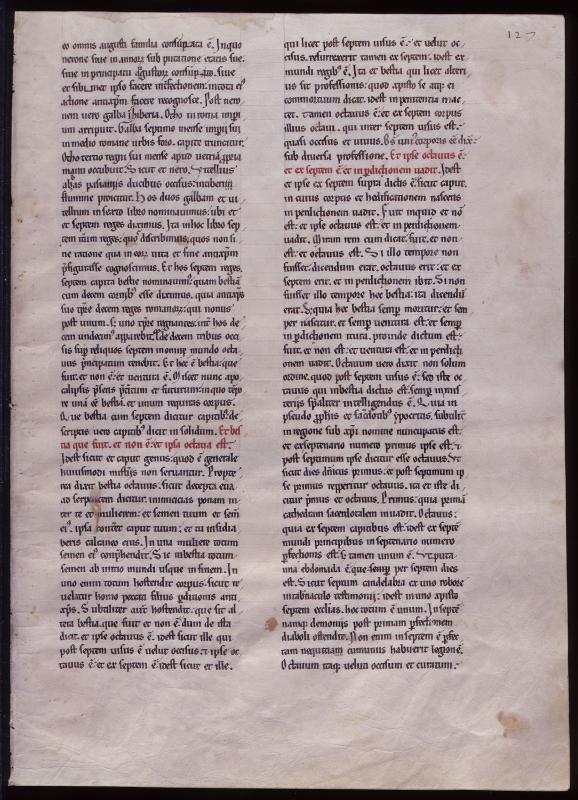 127
eo omnis augusti familia consupta ē. In quo
nerone siue in annorum sub putatione etatis sue.
siue in principatu augustorum
et sibimet ipso facere
actione antixpm facere recognosce. Post nero
nem uero galba hiberia. Otho in roma impi
um arripuit. Galba septimo mense impii sui
in medio romane urbis foro. capite truncatur.
Otho tertio regni sui mense apud
manu occubuit. Sicut et nero. Vitellius
a uespasianis ducibus occisus: in tiberim
flumine proicitur. Hos duos galbam et ui
tellium in sexto libro nominauimus: ubi et
et septem reges diximus. Ita in hoc libro sep
tem reges: quos describimus: quos non si
ne ratione qua in eorum uita et fine antixpm
pfigurasse cognoscimus. Et hos septem reges.
septem capita bestie nominauimus quam bestiā
cum decem cornibus esse diximus. quia antixps
suo tpre decem reges romanorum: qui nonus
post unum. s; uno tpre regnantes: inter hos de
cem undecimus apparebit. de decem tribus occi
sis super reliquos septem
uno principatum tenebit. Et hec ē bestia: que
fuit. et non ē: et uentura ē. O licet nunc apo
calipsis psens preteritum et futurum: in uno tpo
re una ē bestia. et unum iniquitatis corpus.
Que bestia cum septem dicitur capitibus de
scriptis uero capitibus dicit in solidum. Et bes
tia que fuit. et non ē: et ipsa octaua est.
Idest sicut et caput genus: quod ē generale
huiusmodi misteriis non seruantur. Propte
rea dixit bestia octauus. sicut decepta eua.
ad serpentem dicitur. inimicitias ponam in
ter te et mulierem: et semen tuum et semen
eius. ipsa conteret caput tuum: et tu insidia
beris calcaneo eius. In una muliere totum
semen eius comprehendit. Sic in bestia totum
semen ab initio mundi usque in finem. In
uno enim totum hostendit corpus. sicut re
uelatur homo peccati filius pditionis anti
xps. Subtiliter autem hostendit: que sit al
tera bestia. que fuit et non ē: dum de ista
dicat. et ipse octauus ē. idest sicut ille qui
post septem uisus ē uelut occisus: et ipse oc
tauus ē: et ex septem ē: idest sicut et ille.
qui licet post septem uisus ē: et uelut oc
cisus. resurrexerit tamen ex septem. idest ex
mundi regibus ē. Ita et bestia qui licet alteri
us sit professionis: quod xpisto se atque ei
commortuum dicat. idest in penitentia ma
tet. tamen octauus ē: et ex septem corpus
illius octaui. qui inter septem uisus est.
quasi occisus et uiuus. unius corporis eē dixit
sub diuersa professione. Et ipse octauus ē:
et ex septem ē: et in pditionem uadit. Idest
et ipse ex septem supra dictis ē. sicut caput.
in cuius corpus et hedificationem nascens
in perditionem uadit. Fuit inquid et nō
est: et ipse octauus est: et in perditionem
uadit. Miram rem cum dicat. fuit. et non
est: et octauus est. Si illo tempore non
fuisset: dicendum erat. octauus erit: et ex
septem erit. et in perditionem ibit. Si non
fuisset illo tempore hec bestia: ita dicendū
erat. S; quia hec bestia semper moritur: et sem
per nascitur. et semper uentura est: et semper
in pditionem itura. proinde dictum est:
fuit. et non est: et uentura est: et in perditi
onem uadit. Octauum uero dixit non solum
ordine. quod post septem uisus ē. sed iste oc
tauus in bestia dictus est: semper in mist
teriis spiritaliter intelligendus ē. Quia in
pseudo prophetis et sacerdotibus ypocritis. subtiliter
in regione sub xpi nomine nuncupatus est.
et ex septenario numero primus ipse est. et
post septimum ipse dicitur esse octauus. Vt
sicut dies dominicus primus: et post septimum ip
se primus reperitur octauus. ita et iste di
citur primus et octauus. Primus: quia primā
cathedram sacerdotalem inuadit. Octauus:
quia ex septem capitibus est: idest ex septē
mundi principibus in septenario numero
perfectionis est. s; tamen unum ē. Vt puta
una ebdomada ē que semper per septem dies
est. Sicut septem candelabra ex uno robore
in tabernaculo testimonii: idest in uno xpisto
septem ecclesias. hoc totum ē unum. In septē
namque demoniis post primam perfectionem
diaboli ostendit. Non enim in septem ē perfec
tam nequitiam cum unus habuerit legionē.
Octauum itaque uelut occisum et curatum.